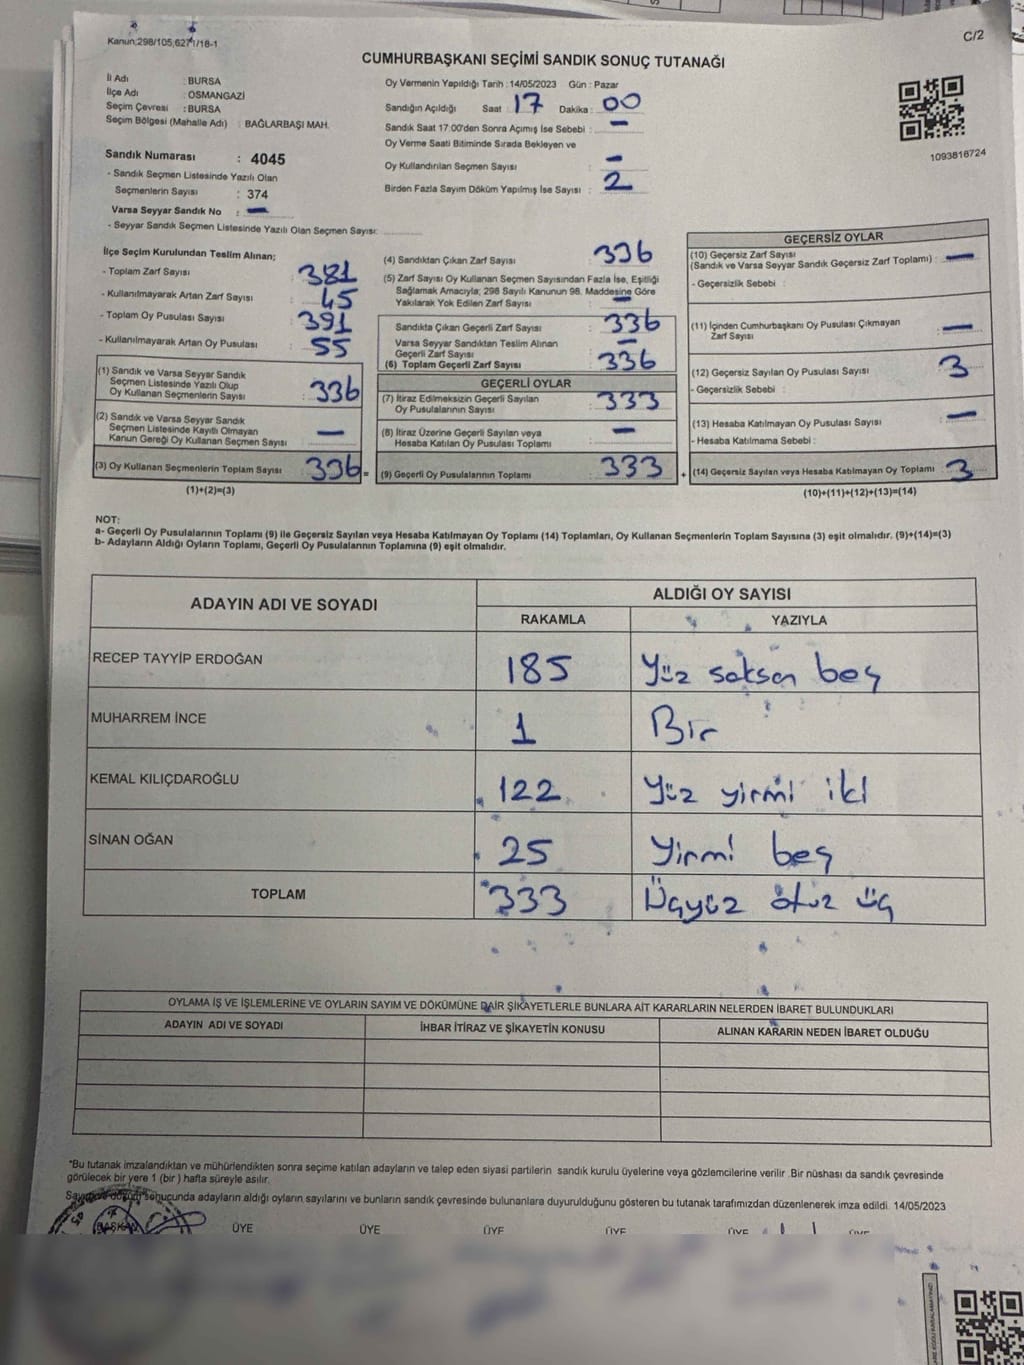 Kanun:298/105,627/1/18-1
C/2
CUMHURBAŞKANI SEÇİMİ SANDIK SONUÇ TUTANAĞI
İl Adı : BURSA
İlçe Adı : OSMANGAZİ
Seçim Çevresi : BURSA
Seçim Bölgesi (Mahalle Adı) : BAĞLARBAŞI MAH.
Sandık Numarası : 4045
- Sandık Seçmen Listesinde Yazılı Olan
Seçmenlerin Sayısı : 374
Varsa Seyyar Sandık No : —
- Seyyar Sandık Seçmen Listesinde Yazılı Olan Seçmen Sayısı:
Oy Vermenin Yapıldığı Tarih : 14/05/2023 Gün : Pazar
Sandığın Açıldığı Saat : 17 Dakika : 00
Sandık Saat 17:00'den Sonra Açımış İse Sebebi : —
Oy Verme Saati Bitiminde Sırada Bekleyen ve
Oy Kullandırılan Seçmen Sayısı : —
Birden Fazla Sayım Döküm Yapılmış İse Sayısı : 2
1093816724
İlçe Seçim Kurulundan Teslim Alınan;
- Toplam Zarf Sayısı : 381
- Kullanılmayarak Artan Zarf Sayısı : 45
- Toplam Oy Pusulası Sayısı : 391
- Kullanılmayarak Artan Oy Pusulası : 55
(1) Sandık ve Varsa Seyyar Sandık
Seçmen Listesinde Yazılı Olup
Oy Kullanan Seçmenlerin Sayısı : 336
(2) Sandık ve Varsa Seyyar Sandık
Seçmen Listesinde Kayıtlı Olmayan
Kanun Gereği Oy Kullanan Seçmen Sayısı : —
(3) Oy Kullanan Seçmenlerin Toplam Sayısı : 336 =
(1)+(2)=(3)
(4) Sandıktan Çıkan Zarf Sayısı : 336
(5) Zarf Sayısı Oy Kullanan Seçmen Sayısından Fazla İse, Eşitliği
Sağlamak Amacıyla; 298 Sayılı Kanunun 98. Maddesine Göre
Yakılarak Yok Edilen Zarf Sayısı : —
Sandıkta Çıkan Geçerli Zarf Sayısı : 336
Varsa Seyyar Sandıktan Teslim Alınan
Geçerli Zarf Sayısı : —
(6) Toplam Geçerli Zarf Sayısı : 336
GEÇERLİ OYLAR
(7) İtiraz Edilmeksizin Geçerli Sayılan
Oy Pusulalarının Sayısı : 333
(8) İtiraz Üzerine Geçerli Sayılan veya
Hesaba Katılan Oy Pusulası Toplamı : —
(9) Geçerli Oy Pusulalarının Toplamı : 333 +
GEÇERSİZ OYLAR
(10) Geçersiz Zarf Sayısı
(Sandık ve Varsa Seyyar Sandık Geçersiz Zarf Toplamı) : —
- Geçersizlik Sebebi :
(11) İçinden Cumhurbaşkanı Oy Pusulası Çıkmayan
Zarf Sayısı : —
(12) Geçersiz Sayılan Oy Pusulası Sayısı : 3
- Geçersizlik Sebebi :
(13) Hesaba Katılmayan Oy Pusulası Sayısı : —
- Hesaba Katılmama Sebebi :
(14) Geçersiz Sayılan veya Hesaba Katılmayan Oy Toplamı : 3
(10)+(11)+(12)+(13)=(14)
NOT:
a- Geçerli Oy Pusulalarının Toplamı (9) ile Geçersiz Sayılan veya Hesaba Katılmayan Oy Toplamı (14) Toplamları, Oy Kullanan Seçmenlerin Toplam Sayısına (3) eşit olmalıdır. (9)+(14)=(3)
b- Adayların Aldığı Oyların Toplamı, Geçerli Oy Pusulalarının Toplamına (9) eşit olmalıdır.
ADAYIN ADI VE SOYADI ALDIĞI OY SAYISI
RAKAMLA YAZIYLA
RECEP TAYYİP ERDOĞAN 185 Yüz seksen beş
MUHARREM İNCE 1 Bir
KEMAL KILIÇDAROĞLU 122 Yüz yirmi iki
SİNAN OĞAN 25 Yirmi beş
TOPLAM 333 Üçyüz otuz üç
OYLAMA İŞ VE İŞLEMLERİNE VE OYLARIN SAYIM VE DÖKÜMÜNE DAİR ŞİKAYETLERLE BUNLARA AİT KARARLARIN NELERDEN İBARET BULUNDUKLARI
ADAYIN ADI VE SOYADI İHBAR İTİRAZ VE ŞİKAYETİN KONUSU ALINAN KARARIN NEDEN İBARET OLDUĞU
*Bu tutanak imzalandıktan ve mühürlendikten sonra seçime katılan adayların ve talep eden siyasi partilerin sandık kurulu üyelerine veya gözlemcilerine verilir .Bir nüshası da sandık çevresinde
görülecek bir yere 1 (bir ) hafta süreyle asılır.
sonucunda adayların aldığı oyların sayılarını ve bunların sandık çevresinde bulunanlara duyurulduğunu gösteren bu tutanak tarafımızdan düzenlenerek imza edildi. 14/05/2023
BAŞKAN ÜYE ÜYE ÜYE ÜYE ÜYE ÜYE